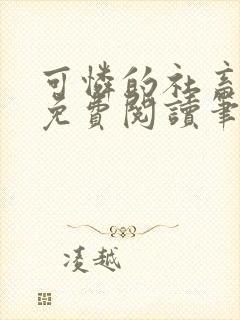 可憐的社畜
免費閱讀筆
凌越